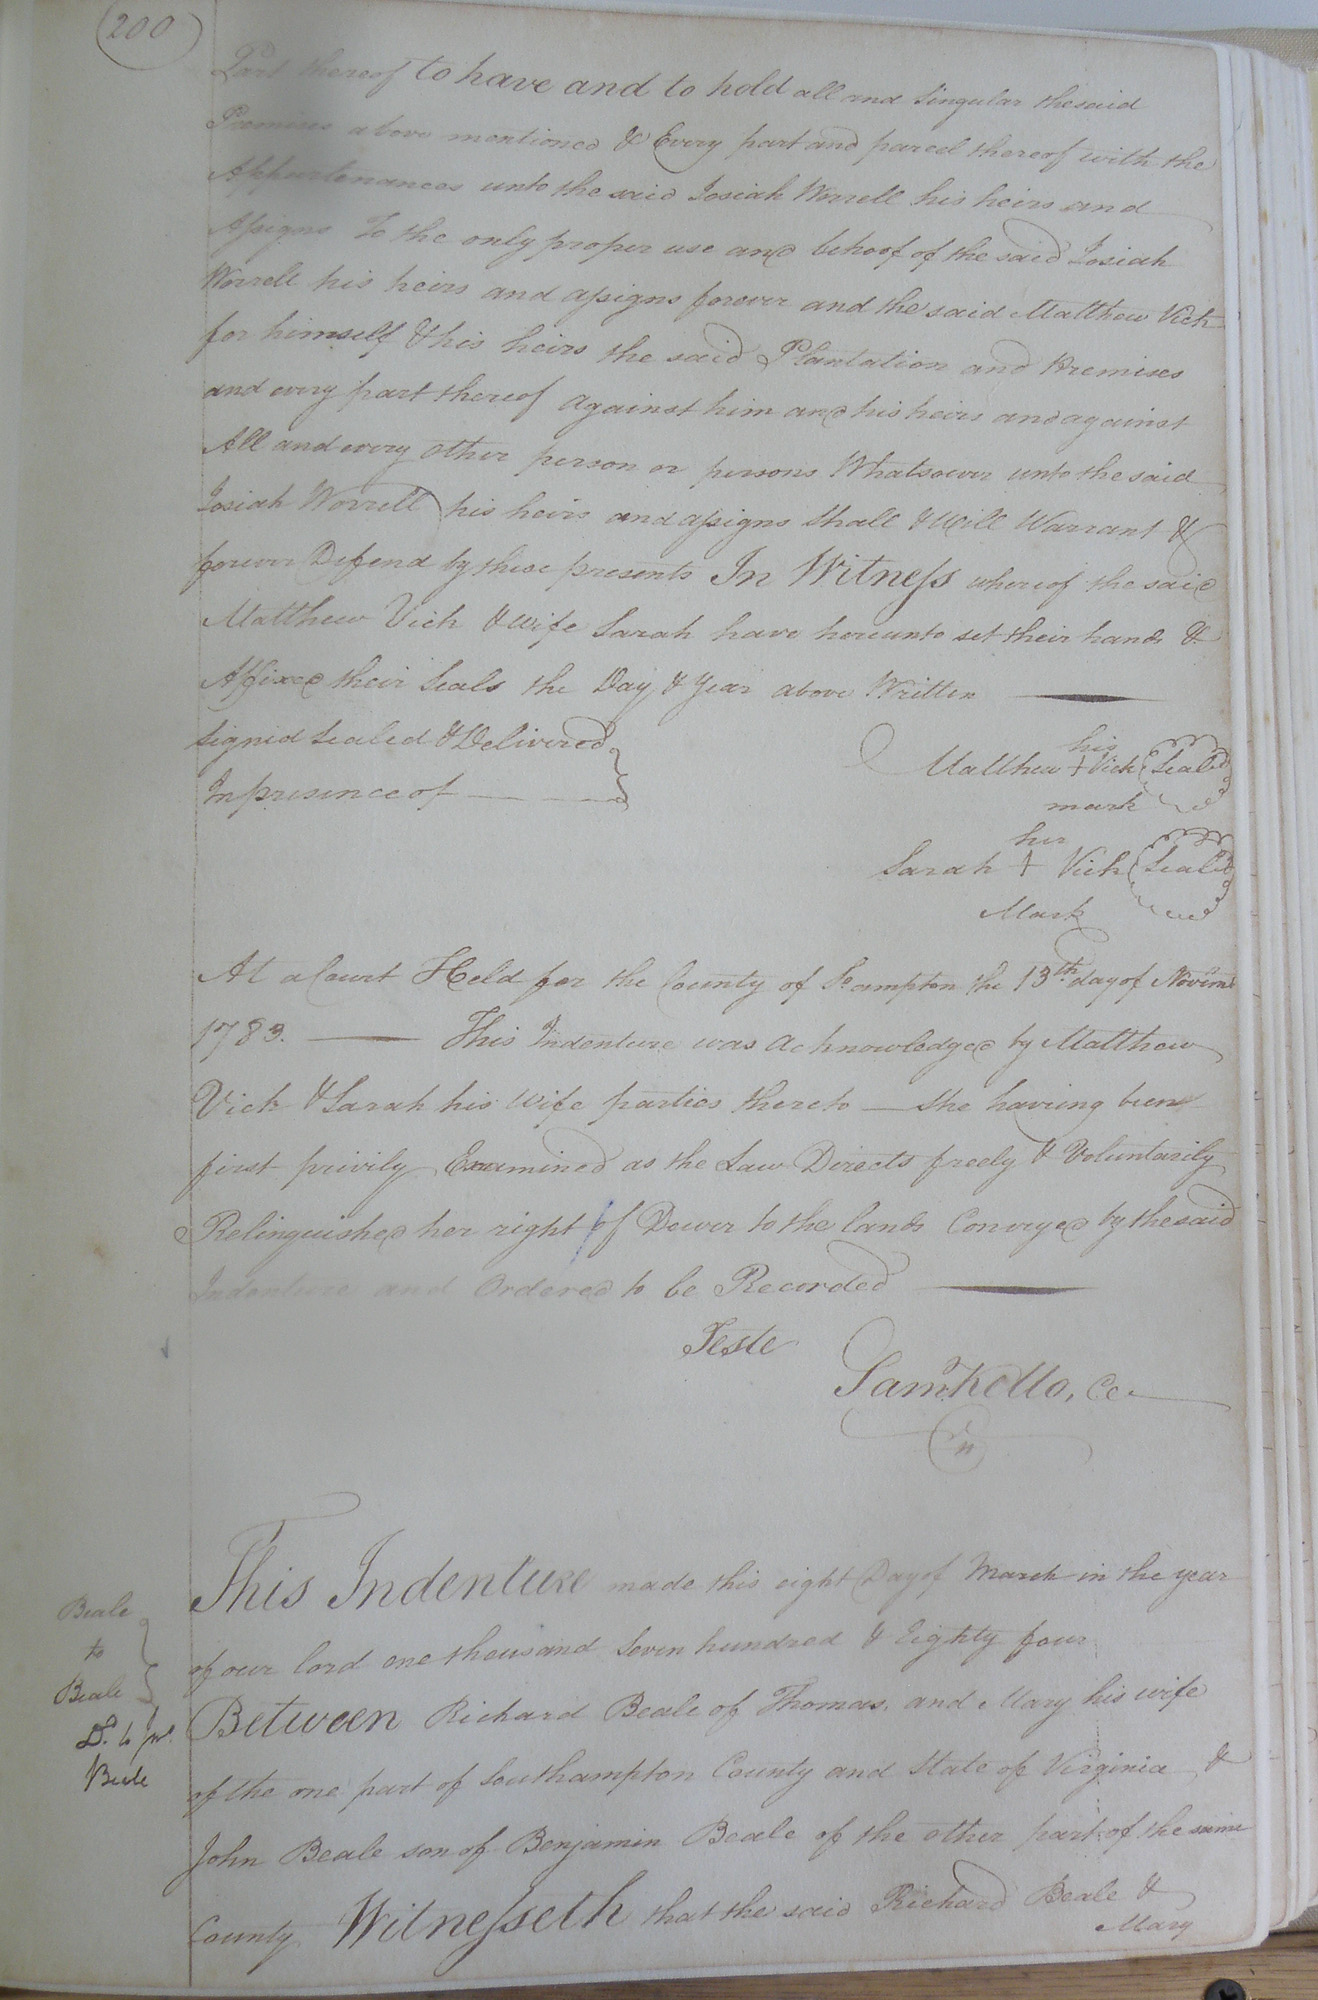 200
Part thereof to have and to hold all and Singular the said
Premises above mentioned & Every part and parcel thereof with the
Appurtenances unto the said Josiah Worrell his heirs and
Assigns To the only proper use and behoof of the said Josiah
Worrell his heirs and assigns forever and the said Matthew Vick
for himself & his heirs the said Plantation and Premises
and every part thereof against him and his heirs and against
All and every other person or persons Whatsoever unto the said
Josiah Worrell his heirs and assigns Shall & Will Warrant &
forever Defend by these presents In Witness whereof the said
Matthew Vick & wife Sarah have hereunto set their hands &
Affixed their Seals the Day & Year above Written
Signed Sealed & Delivered
In presence of
his
Matthew + Vick Seald
mark
her
Sarah + Vick Seald
Mark
At a Court Held for the County of So.ampton the 13th day of Novem
1783. This Indenture was acknowledged by Matthew
Vick & Sarah his Wife parties thereto — She having been
first privily Examined as the Law Directs freely & Voluntarily
Relinquished her right of Dower to the lands Conveyed by the said
Indenture and Ordered to be Recorded
Teste
Saml Kello, CC
This Indenture made this eight Day of March in the year
of our lord one thousand Seven hundred & Eighty four
Beale
to
Beale
Dd. to
Beale
Between Richard Beale of Thomas, and Mary his wife
of the one part of Southampton County and State of Virginia &
John Beale son of Benjamin Beale of the other part of the same
County Witnesseth that the said Richard Beale &
Mary